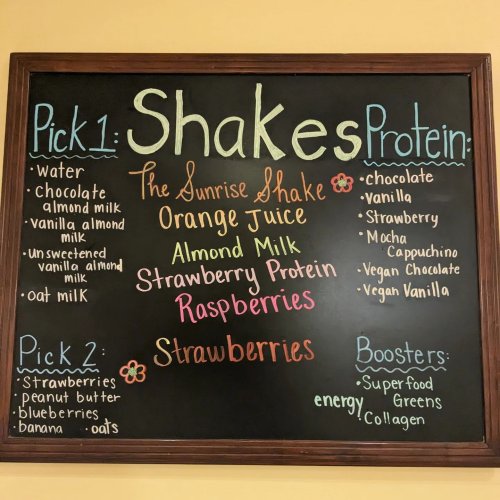 Shakes
Pick 1:
• Water
• Chocolate
almond milk
• vanilla almond
milk
• unsweetened
vanilla almond
milk
• oat milk
The Sunrise Shake
Orange Juice
Almond Milk
Strawberry Protein
Raspberries
Strawberries
Protein:
• chocolate
• vanilla
• Strawberry
• Mocha
Cappuchino
• Vegan Chocolate
• Vegan Vanilla
Pick 2:
• Strawberries
• peanut butter
• blueberries
• banana • oats
Boosters:
• Superfood
Greens
energy
• Collagen